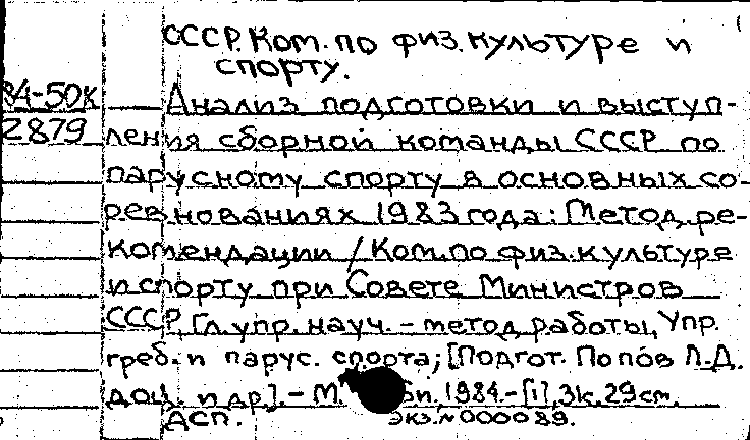 СССР. Ком. по физ. культуре и
спорту.
84-50к Анализ подготовки и выступ-
2879 ления сборной команды СССР по
парусному спорту в основных со-
ревнованиях 1983 года: Метод. ре-
комендации / Ком. по физ. культуре
и спорту при Совете Министров
СССР, Гл. упр. науч. - метод. работы, Упр.
греб. и парус. спорта; [Подгот. Попов Л.Д.
доц. и др.]. - М. 1984. - [1], 3к. 29см.
ДСП. Экз. № 000089.